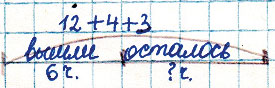 12+4+3
вышли осталось
6 ч. ? ч.